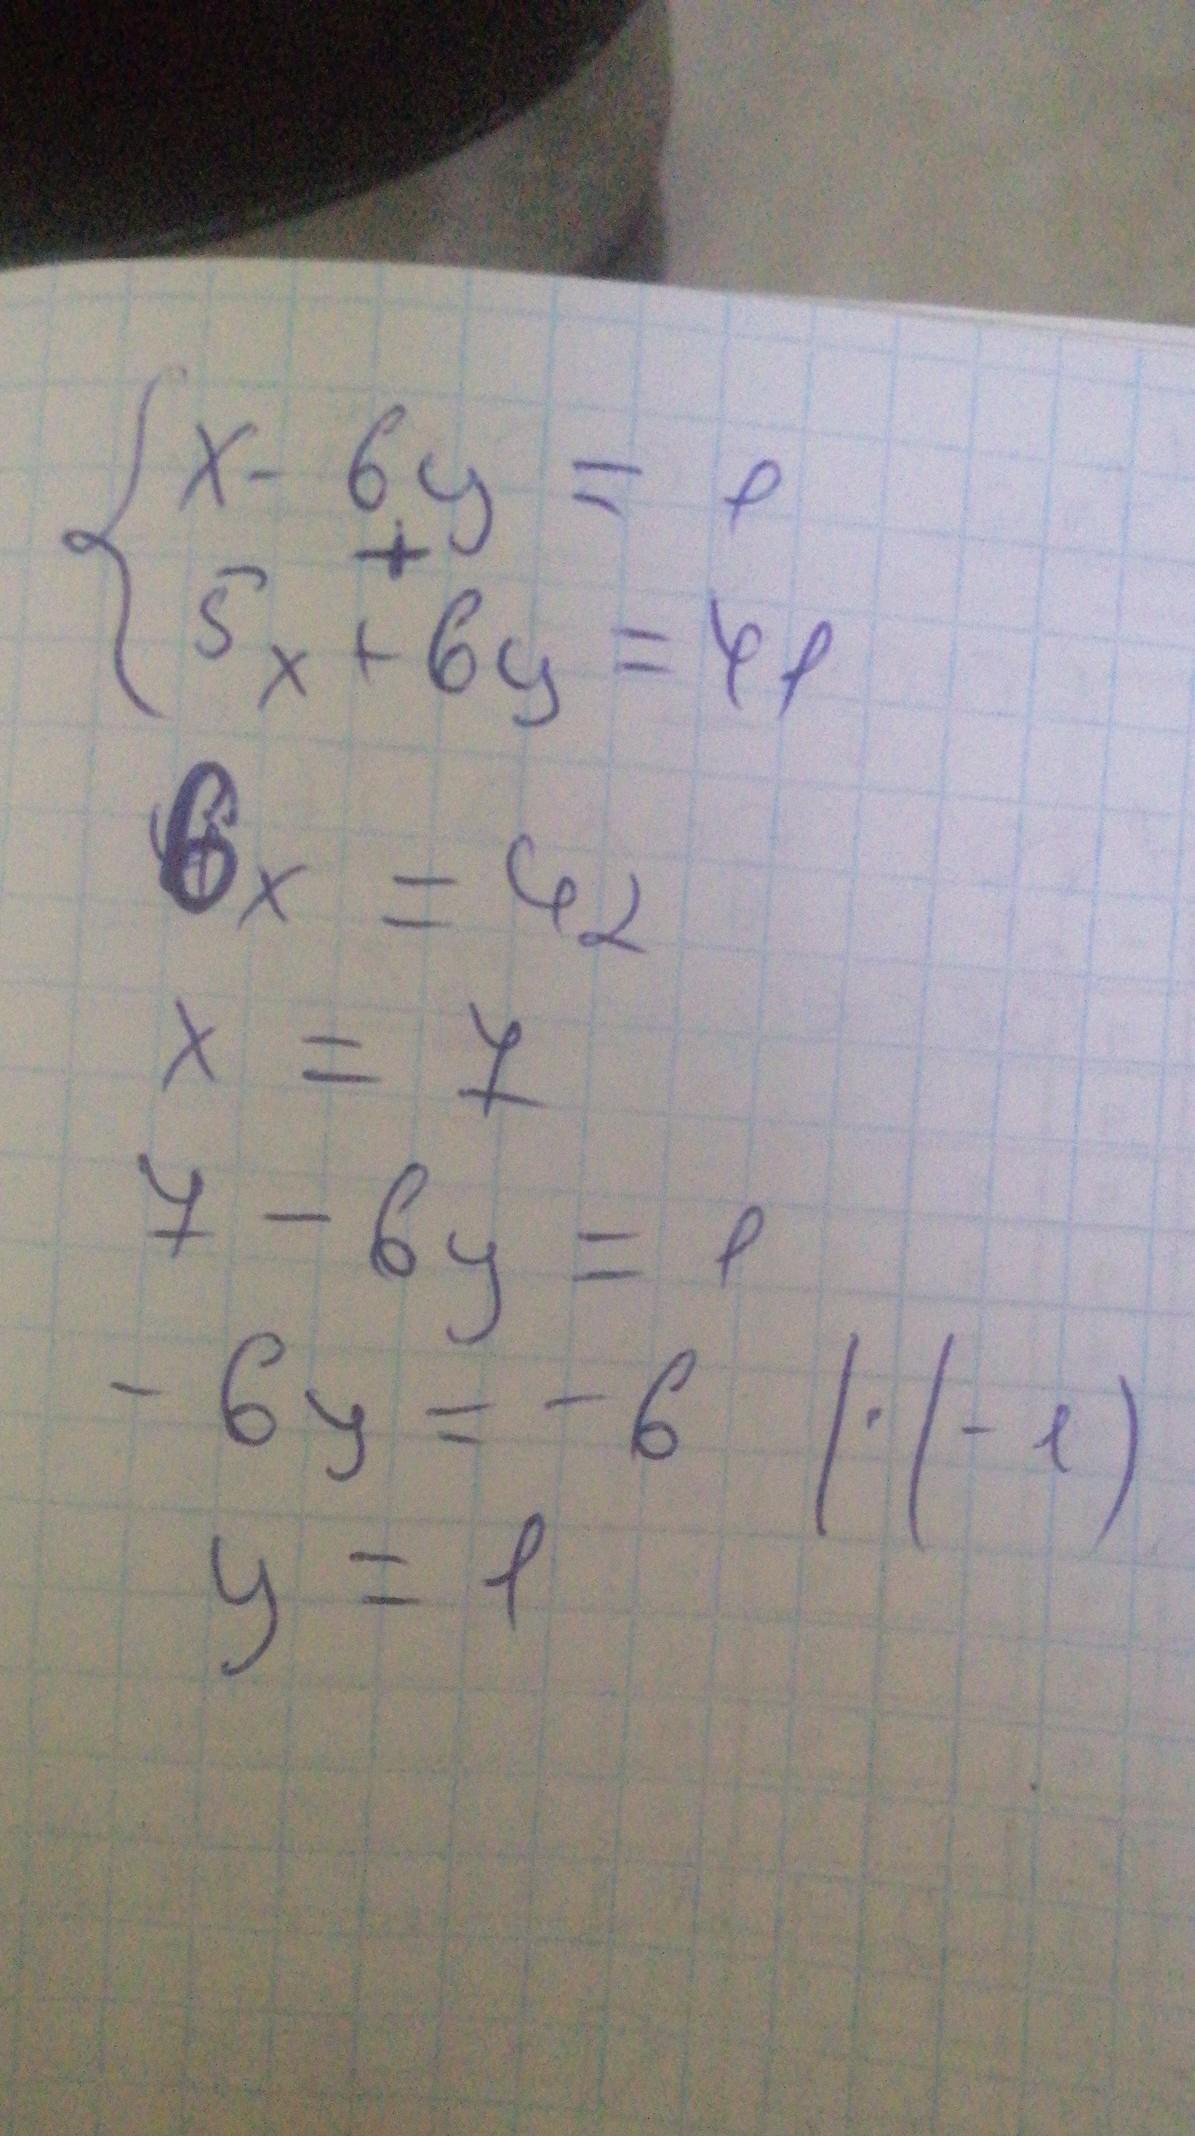 x - 6y = 1
+
5x + 6y = 41
6x = 42
x = 7
7 - 6y = 1
- 6y = - 6 |·(-1)
y = 1